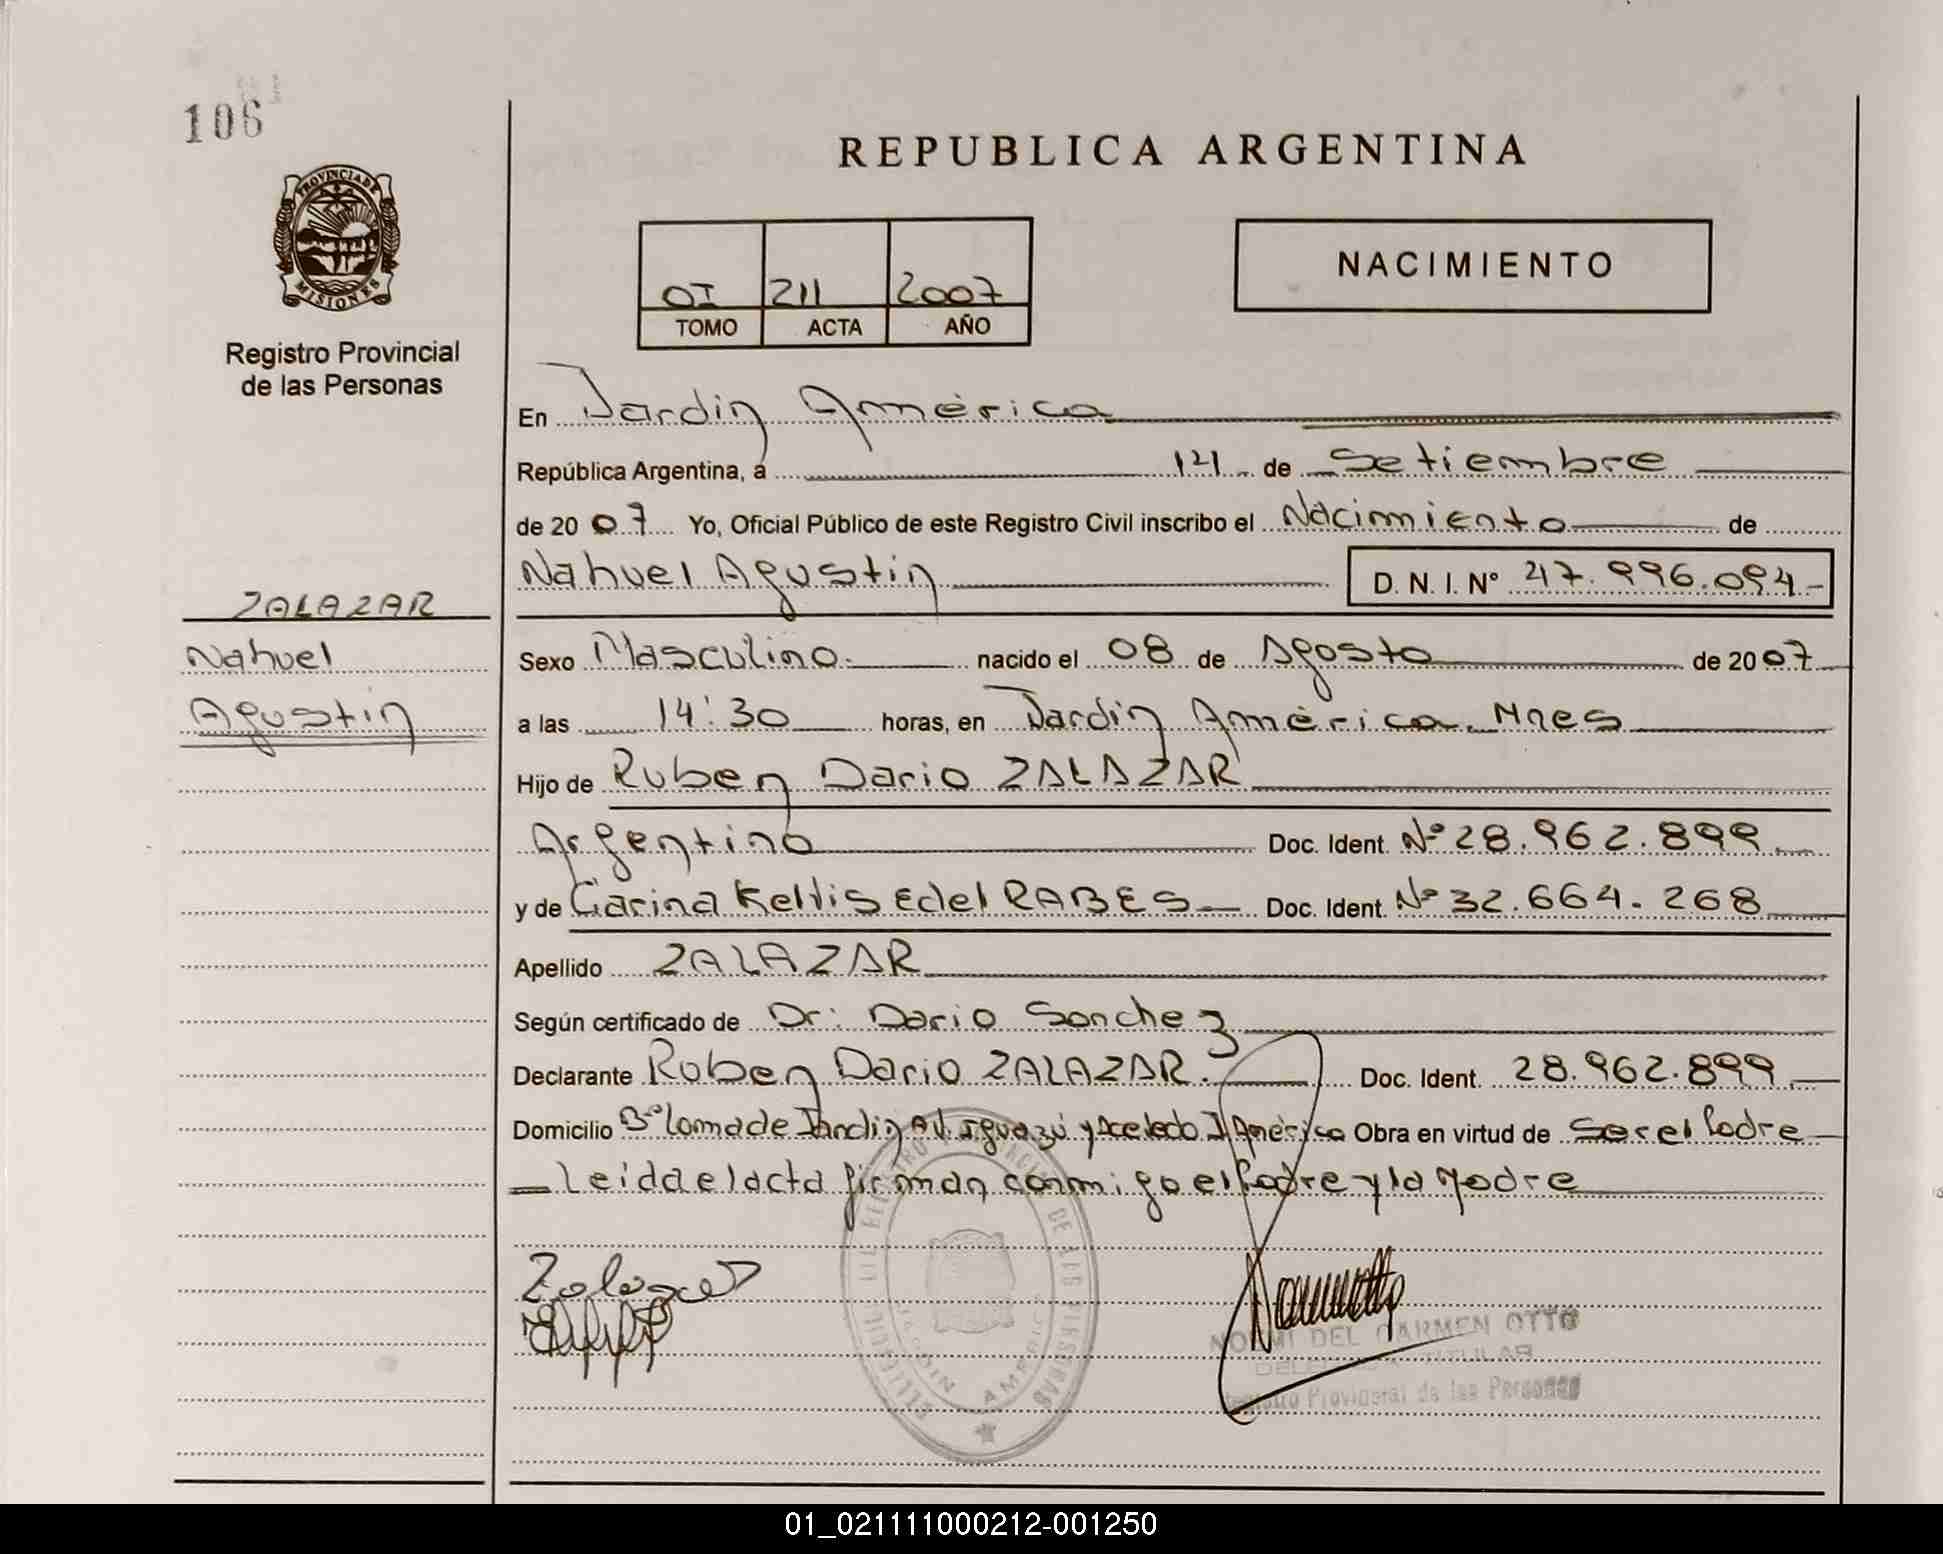 106
PROVINCIA DE
MISIONES
Registro Provincial
de las Personas
REPUBLICA ARGENTINA
NACIMIENTO
OI 211 2007
TOMO ACTA AÑO
En Jardin América
República Argentina, a 14 de Setiembre
de 2007 Yo, Oficial Público de este Registro Civil inscribo el Nacimiento de
Nahuel Agustin D. N. I. Nº 47.996.094-
ZALAZAR
Nahuel
Agustin
Sexo Masculino. nacido el 08 de Agosto de 2007
a las 14:30 horas, en Jardin América. Mnes
Hijo de Ruben Dario ZALAZAR
Argentino Doc. Ident. Nº 28.962.899
y de Carina Keltis Edel RABES Doc. Ident. Nº 32.664.268
Apellido ZALAZAR
Según certificado de Dr: Dario Sanchez
Declarante Ruben Dario ZALAZAR. Doc. Ident. 28.962.899
Domicilio Bº Loma de Jardin Av. Iguazú y Acevedo J América Obra en virtud de Ser el Padre
Leida el acta firman conmigo el Padre y la Madre
Zalazar
NOEMI DEL CARMEN OTTO
DELEGADA TITULAR
Registro Provincial de las Personas
JARDIN AMERICA
01_021111000212-001250